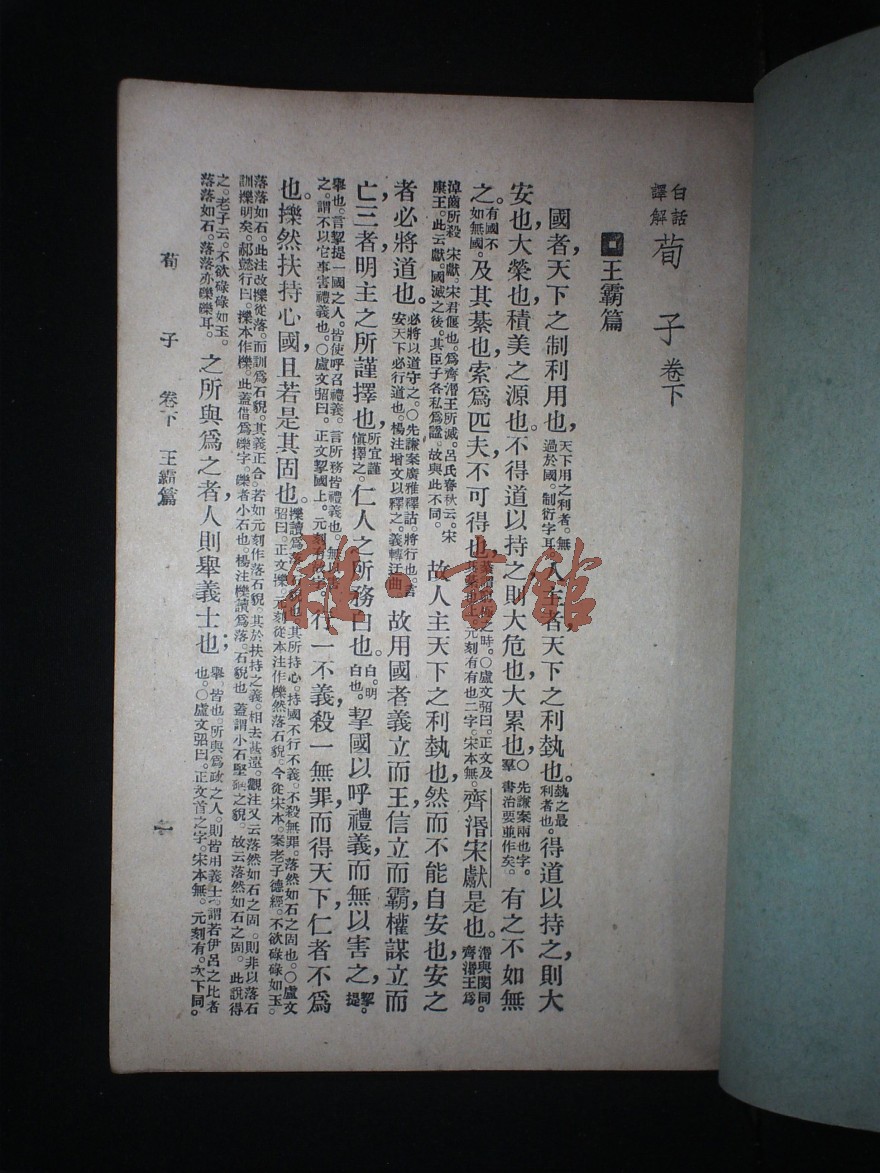 白話譯解 荀子 卷下
王霸篇
國者、天下之制利用也、天下用之利者。無過於國。制衍字耳。人主者、天下之利埶也。埶之最利者也。得道以持之、則大
安也、大榮也、積美之源也。不得道以持之、則大危也、大累也、○先謙案兩也字。羣書治要並作矣。有之不如無
之。有國不如無國。及其綦也、索爲匹夫不可得也、之時。○盧文弨曰。正文及元刻有有也二字。宋本無。齊湣宋獻是也。湣與閔同。齊湣王爲
淖齒所殺。宋獻。宋君偃也。爲齊湣王所滅。呂氏春秋云。宋康王。此云獻。國滅之後。其臣子各私爲諡。故與此不同。故人主、天下之利埶也、然而不能自安也、安之
者必將道也。必將以道守之。○先謙案廣雅釋詁。將行也。言安天下必行道也。楊注增文以釋之。義轉迂曲。故用國者、義立而王、信立而霸、權謀立而
亡、三者明主之所謹擇也、所宜謹愼擇之。仁人之所務白也。白。明白也。挈國以呼禮義、而無以害之、挈。提
舉也。言挈提一國之人。皆使呼召禮義。言所務皆禮義也。無以害之。謂不以它事害禮義也。○盧文弨曰。正文挈國上。元刻有故字。行一不義、殺一無罪、而得天下、仁者不爲
也。擽然扶持心國、且若是其固也。擽讀爲落。石貌也。其所持心。持國不行不義。不殺無罪。落然如石之固也。○盧文弨曰。正文擽。元刻從木。注作櫟然落石貌。今從宋本。案老子德經。不欲碌碌如玉。
落落如石。此注改擽從落。而訓爲石貌。其義正合。若如元刻作落石貌。其於扶持之義。相去甚遠。觀注又云落然如石之固。則非以落石訓擽明矣。郝懿行曰。擽本作櫟。此蓋借爲礫字。礫者小石也。楊注擽讀爲落。石貌也。蓋謂小石堅之貌。故云落然如石之固。此說得
之。老子云。不欲碌碌如玉。落落如石。落落亦礫礫耳。之所與爲之者、人則舉義士也；舉。皆也。所與爲政之人。則皆用義士。謂若伊呂之比者也。○盧文弨曰。正文首之字。宋本無。元刻有。次下同。
荀子 卷下 王霸篇 一
雜·書館